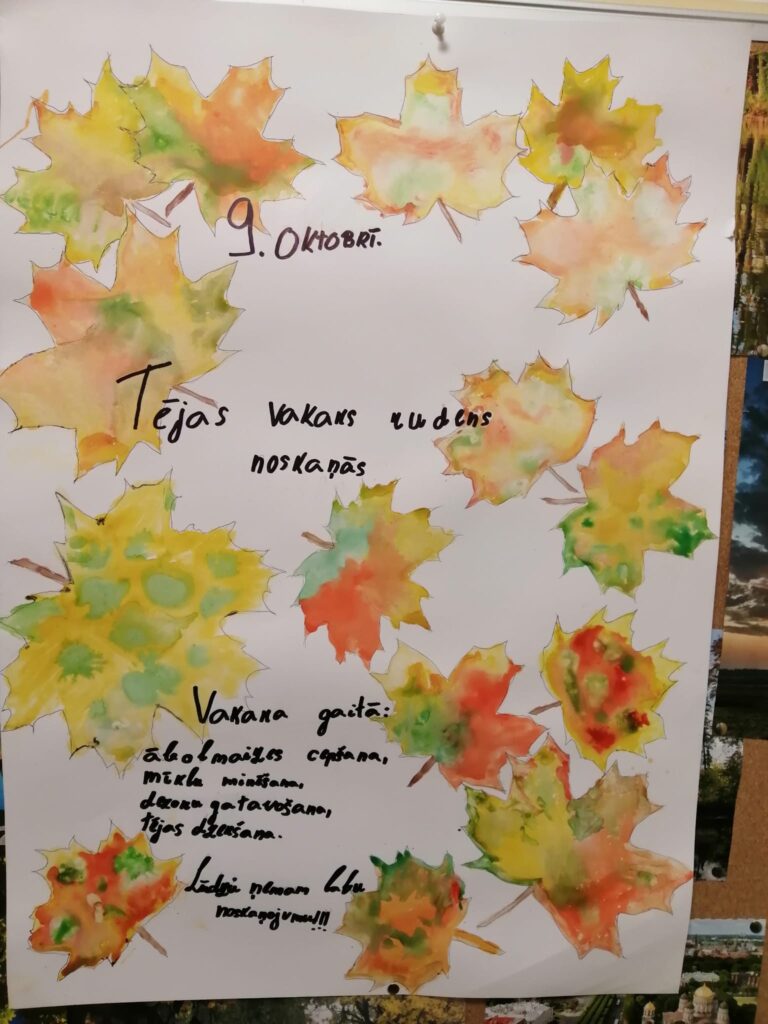 9. Oktobrī.
Tējas vakars rudens
noskaņās
Vakara gaitā:
ābolmaizes cepšana,
mīklu minēšana,
dekoru gatavošana,
tējas dzeršana.
Līdzi ņemam labu
noskaņojumu!!!